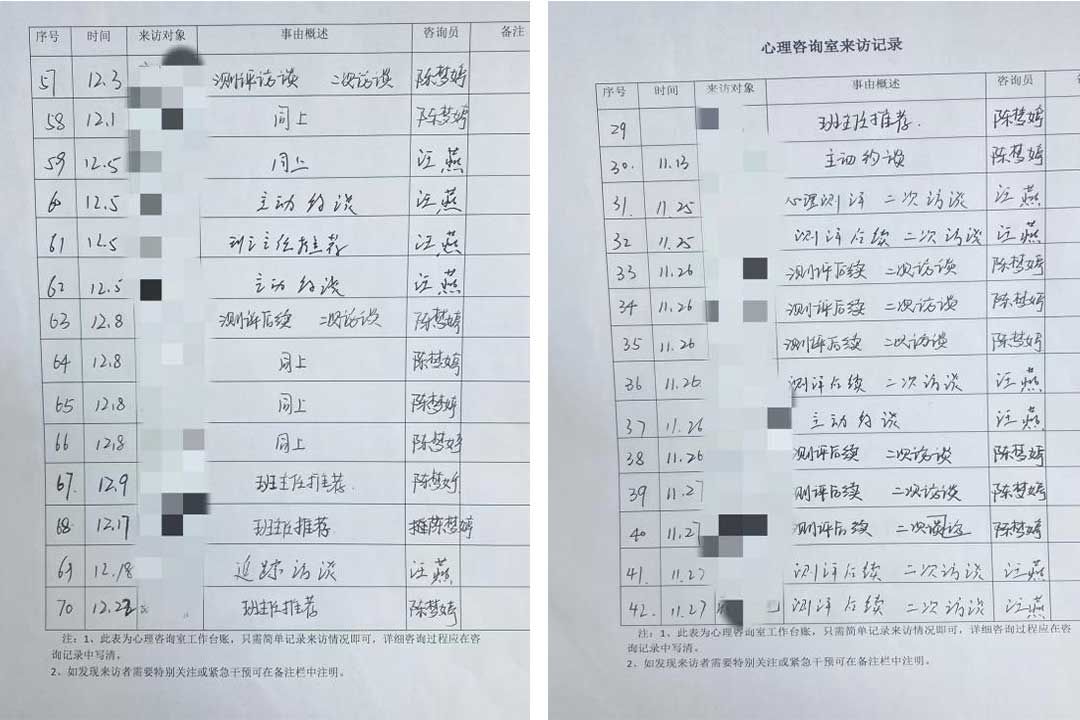 序号 时间 来访对象 事由概述 咨询员 备注
57 12.3 测评访谈 二次访谈 陈梦婷
58 12.1 同上 陈梦婷
59 12.5 同上 汪燕
60 12.5 主动约谈 汪燕
61 12.5 班主任推荐 汪燕
62 12.5 主动约谈 汪燕
63 12.8 测评后续 二次访谈 陈梦婷
64 12.8 同上 陈梦婷
65 12.8 同上 陈梦婷
66 12.8 同上 陈梦婷
67. 12.9 班主任推荐. 陈梦婷
68. 12.17 班主任推荐 陈梦婷
69 12.18 追踪访谈 汪燕
70 12.22 班主任推荐 陈梦婷
注：1、此表为心理咨询室工作台账，只需简单记录来访情况即可，详细咨询过程应在咨
询记录中写清。
2、如发现来访者需要特别关注或紧急干预可在备注栏中注明。
心理咨询室来访记录
序号 时间 来访对象 事由概述 咨询员
29 班主任推荐. 陈梦婷
30. 11.13 主动约谈 陈梦婷
31. 11.25 心理测评 二次访谈 汪燕
32 11.25 测评后续 二次访谈 汪燕
33 11.26 测评后续 二次访谈 陈梦婷
34 11.26 测评后续 二次访谈 陈梦婷
35 11.26 测评后续 二次访谈 陈梦婷
36 11.26. 测评后续 二次访谈 汪燕
37 11.26 主动约谈 汪燕
38 11.26 测评后续 二次访谈 陈梦婷
39 11.27 测评后续 二次访谈 陈梦婷
40 11.27 测评后续 二次访谈 陈梦婷
41. 11.27 测评后续 二次访谈 汪燕
42. 11.27 测评后续 二次访谈 汪燕
注：1、此表为心理咨询室工作台账，只需简单记录来访情况即可，详细咨询过程应在咨
询记录中写清。
2、如发现来访者需要特别关注或紧急干预可在备注栏中注明。